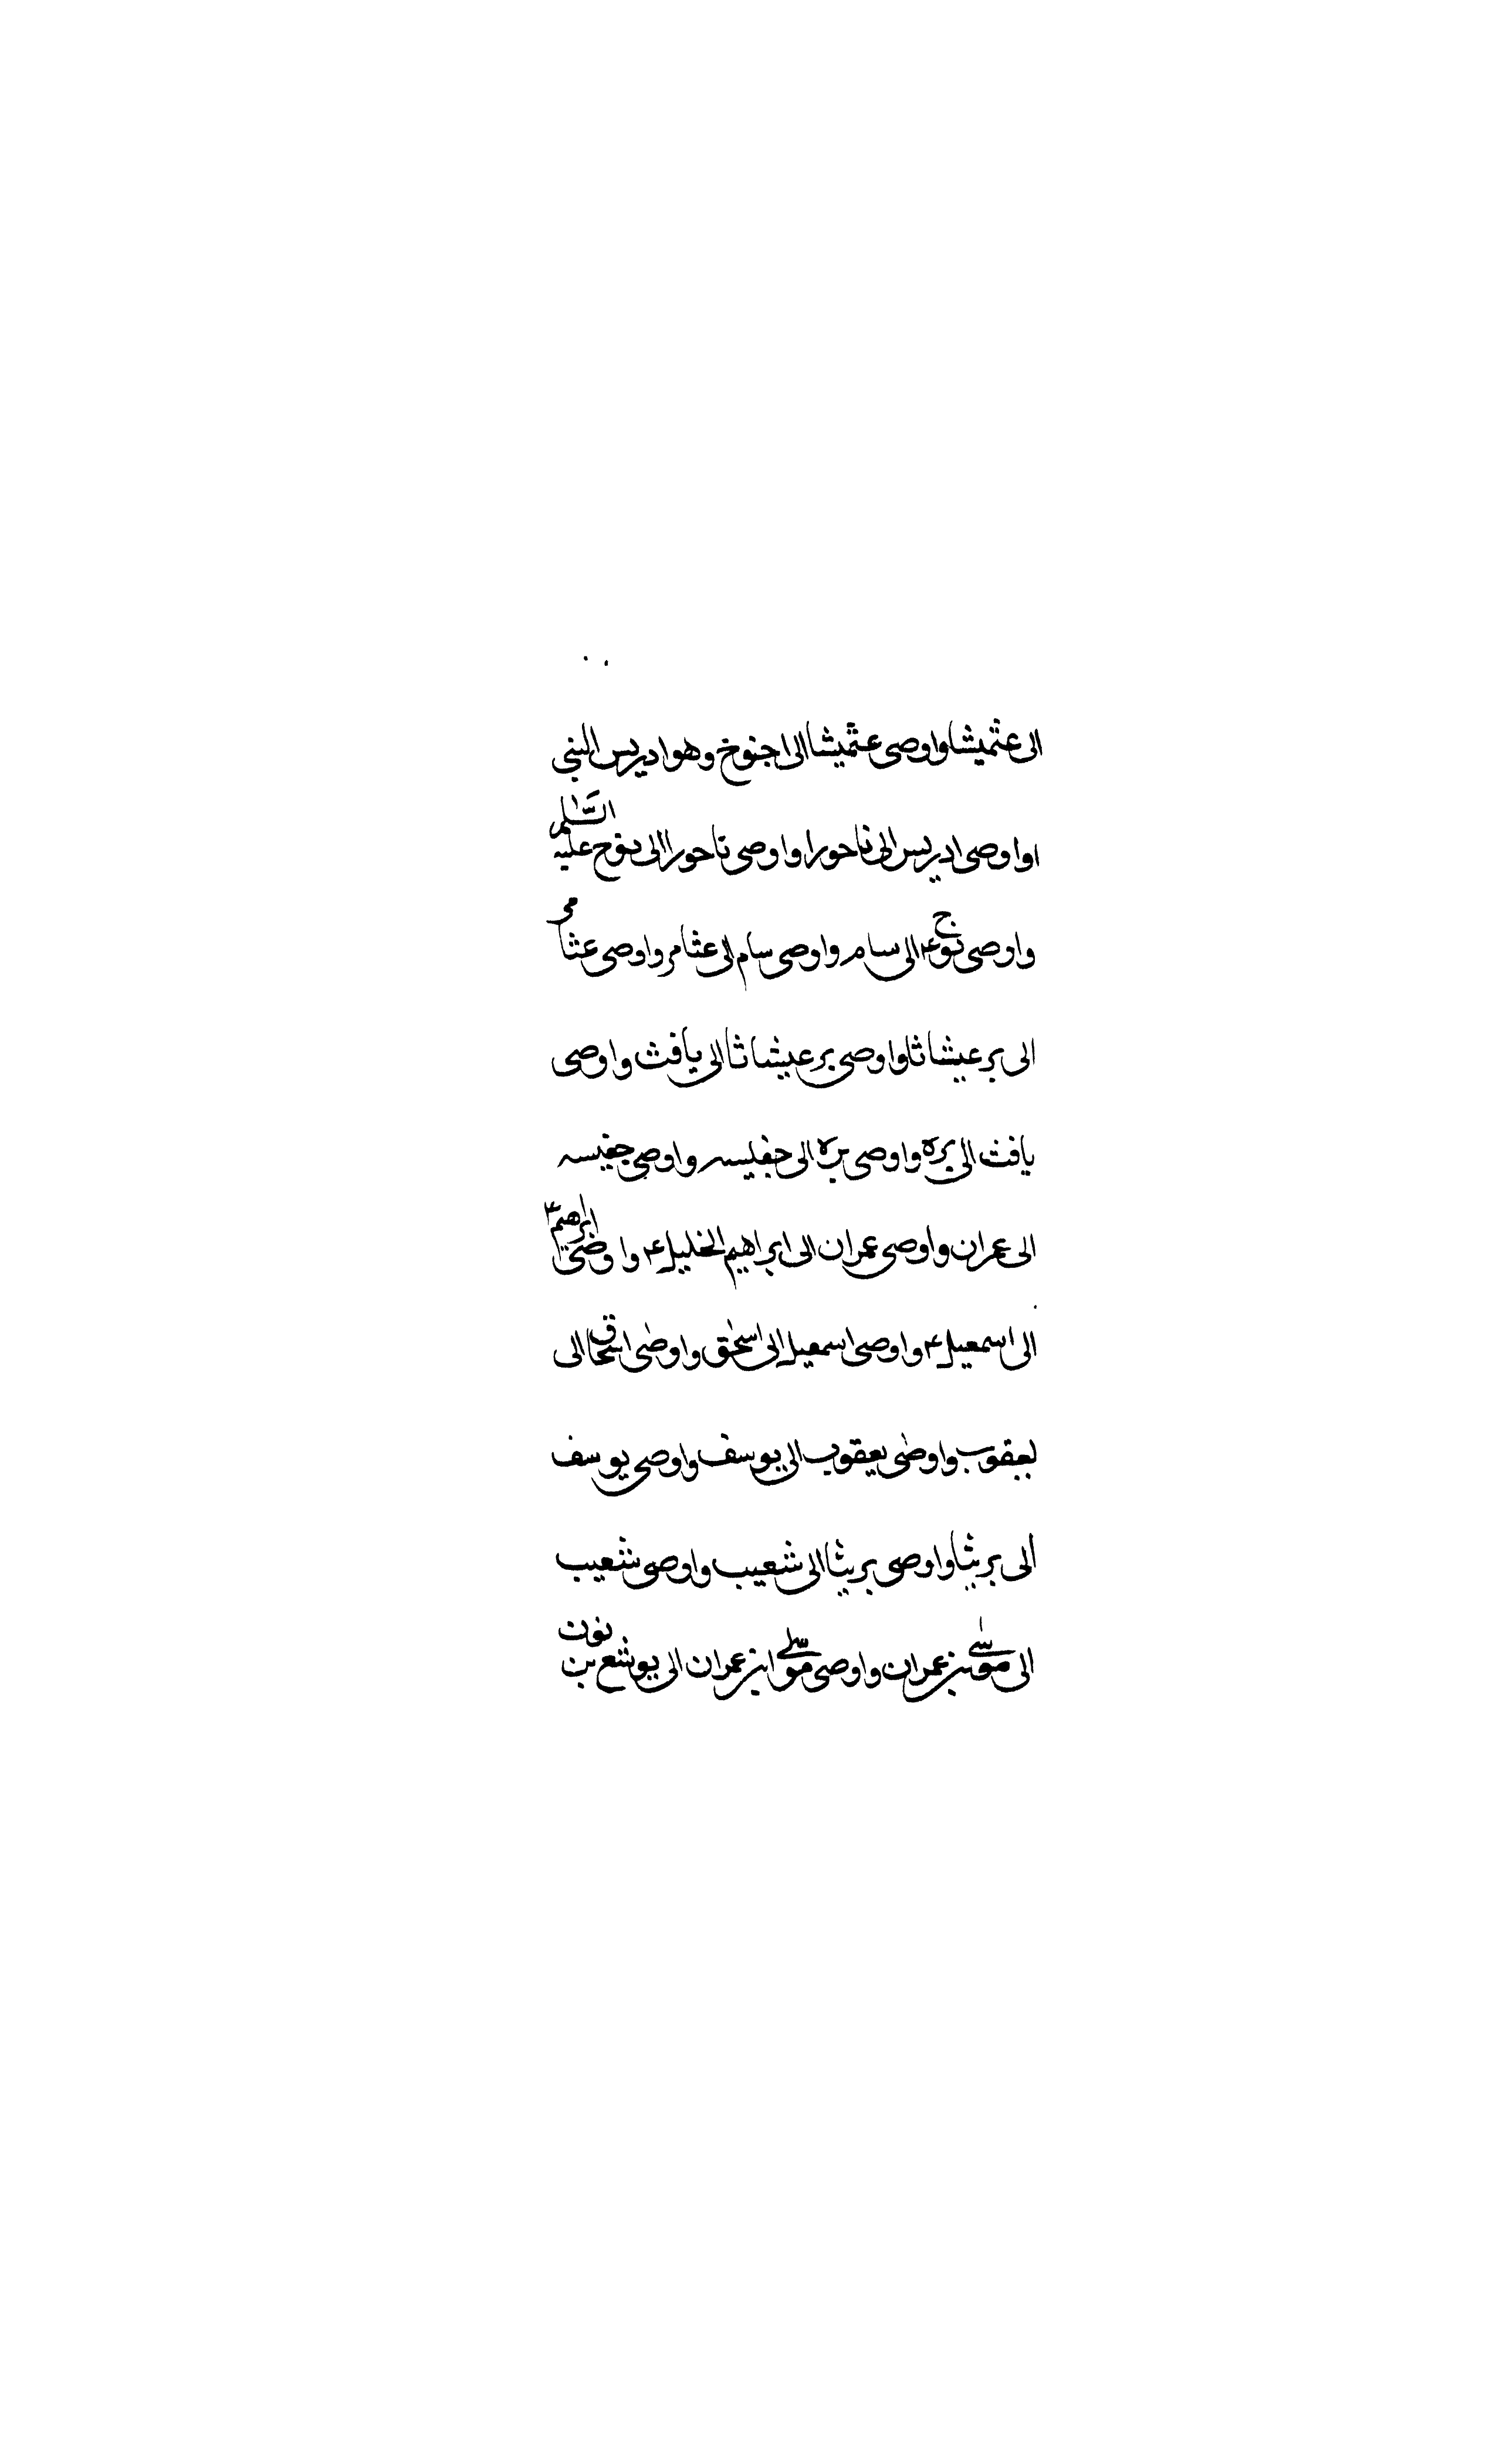 الى عثميشا واوصى عثميشا الى اخنوخ وهو ادريس النبي
واوصى ادريس الى ناحورا واوصى ناحورا الى نوح عليه السلام
واوصى نوح ع الى سام واوصى سام الى عثامر واوصى عثامر
الى برعيشاثا واوصى برعيشاثا الى يافث واوصى
يافث الى بره واوصى بره الى جفيسه واوصى جفيسه
الى عمران واوصى عمران الى ابراهيم الخليل ع واوصى ابرهيم ع
الى اسمعيل ع واوصى اسمعيل الى اسحق واوصى اسحاق الى
يعقوب واوصى يعقوب الى يوسف واوصى يوسف
الى بريثا واوصى بريثا الى شعيب واوصى شعيب
الى موسى بن عمران واوصى موسى ابن عمران الى يوشع بن نون